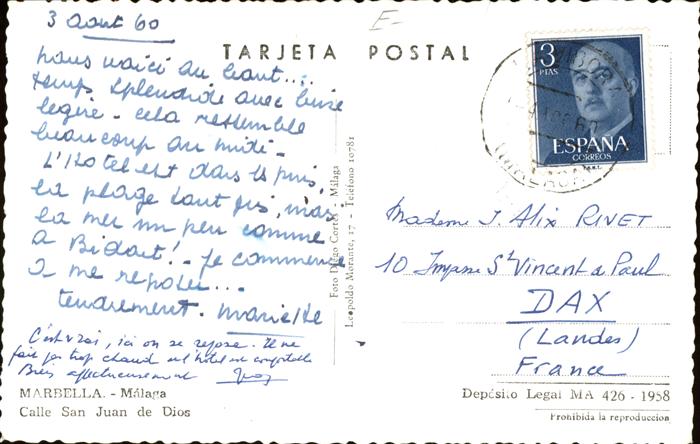 3 Aout 60
TARJETA POSTAL
nous voici au haut....
temps splendide avec brise
legère - cela ressemble
beaucoup au midi -
L'Hotel est dans les pins,
la plage tout gris, mais
la mer un peu comme
a Bidart! - Je commence
a me reposer...
tendrement.
C'est vrai, ici on se repose. Il ne
fait pas trop chaud et l'hôtel est confortable
Bien affectueusement
MARBELLA. - Málaga
Calle San Juan de Dios
Foto Diego Cortés - Málaga
Leopoldo Morante, 17 - Teléfono 10781
3
PTAS
ESPAÑA
CORREOS
Madame J. Alix RIVET
10 Impasse St Vincent de Paul
DAX
(Landes)
France
Depósito Legal MA 426 - 1958
Prohibida la reproducción